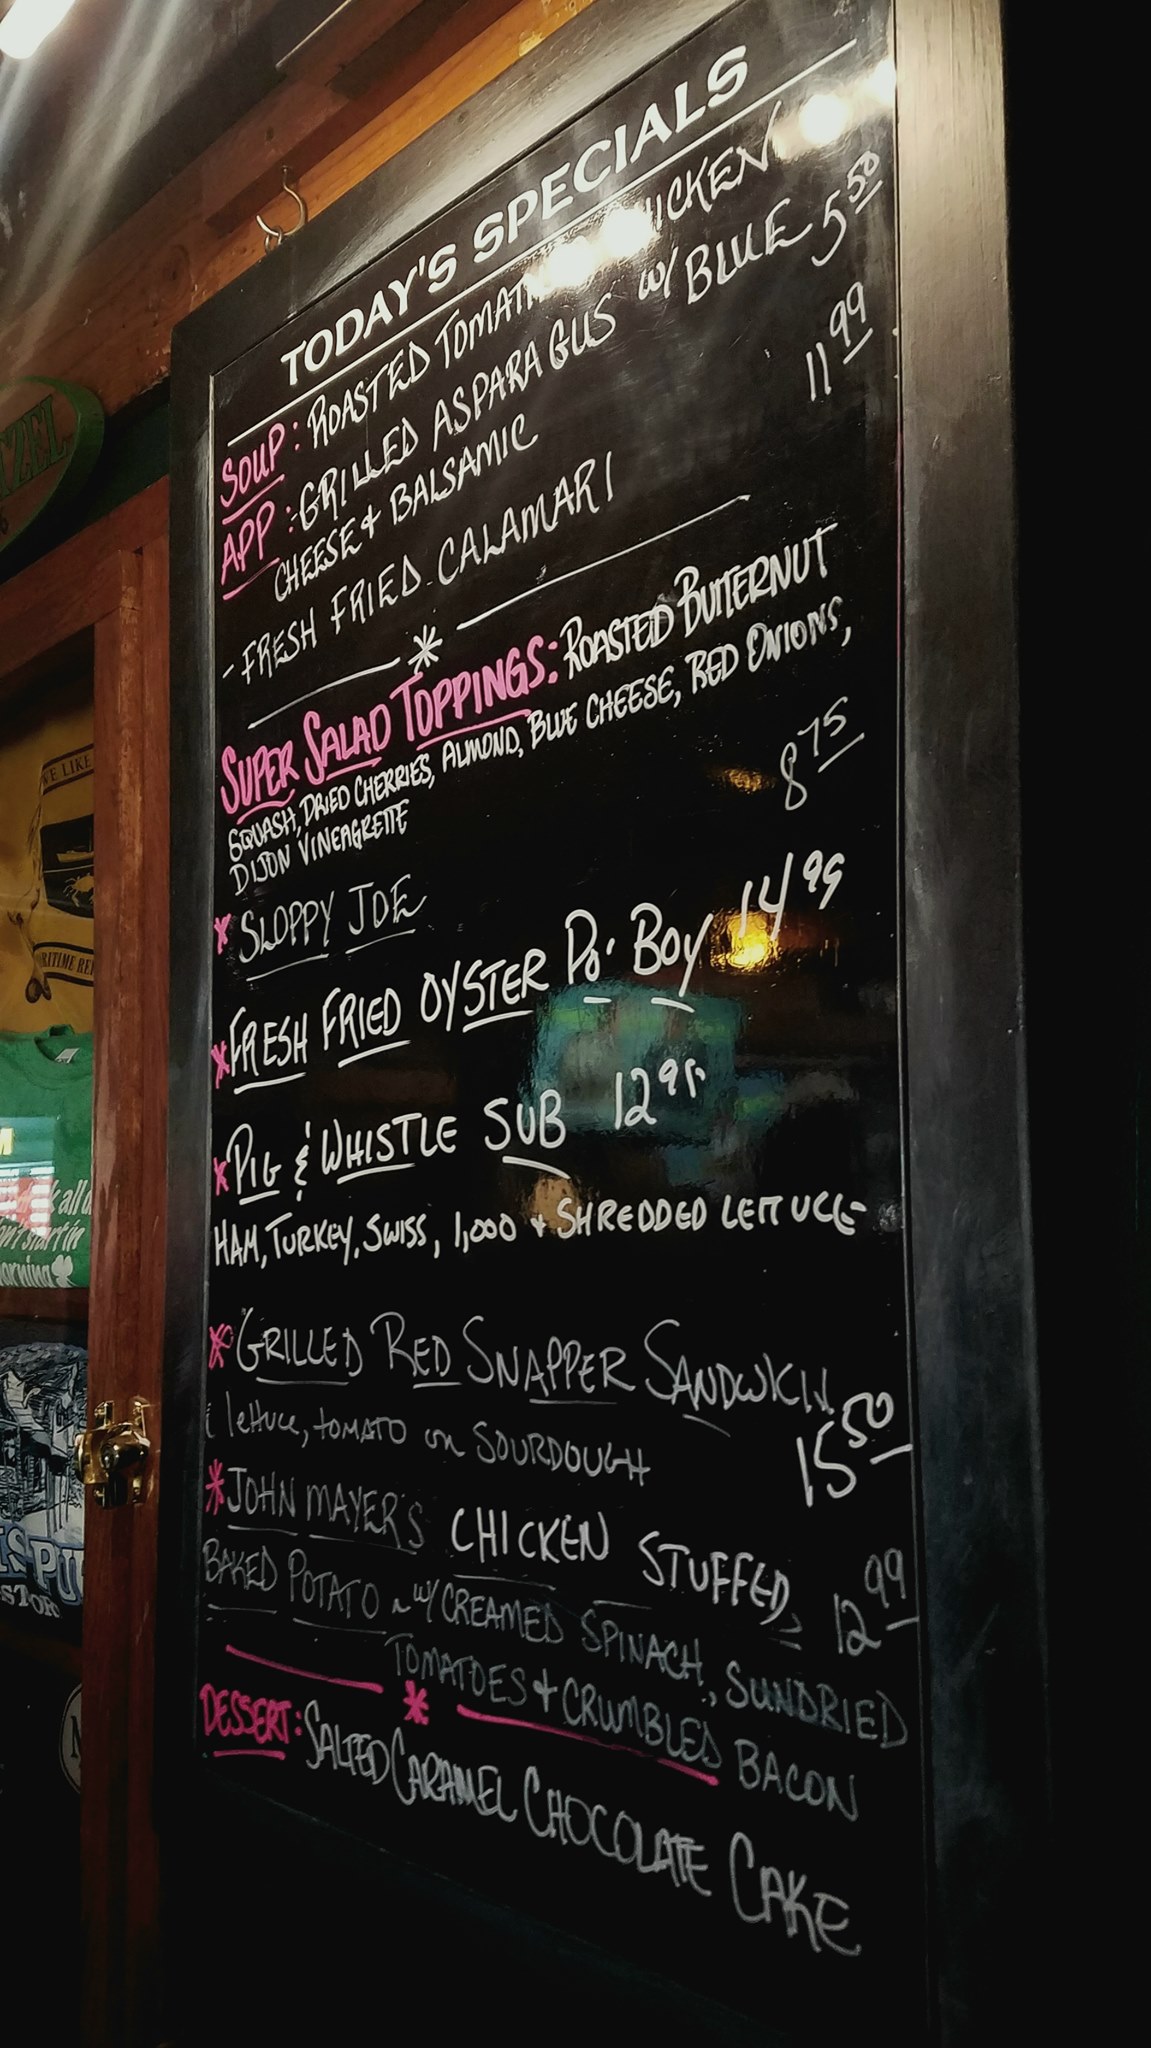 TODAY'S SPECIALS
SOUP: ROASTED TOMATO CHICKEN
APP: -GRILLED ASPARAGUS W/ BLUE 5.50
CHEESE + BALSAMIC
-FRESH FRIED CALAMARI 11.99
*
SUPER SALAD TOPPINGS: ROASTED BUTTERNUT
SQUASH, DRIED CHERRIES, ALMOND, BLUE CHEESE, RED ONIONS,
DIJON VINEAGRETTE
* SLOPPY JOE 8.75
* FRESH FRIED OYSTER PO' BOY 14.99
* PIG & WHISTLE SUB 12.95
HAM, TURKEY, SWISS, 1,000 + SHREDDED LETTUCE
* GRILLED RED SNAPPER SANDWICH
lettuce, tomato on SOURDOUGH 15.50
* JOHN MAYER'S CHICKEN STUFFED 12.99
BAKED POTATO ~ W/ CREAMED SPINACH, SUNDRIED
TOMATOES + CRUMBLED BACON
*
DESSERT: SALTED CARAMEL CHOCOLATE CAKE
WE LIKE
all d
n't start in
orning